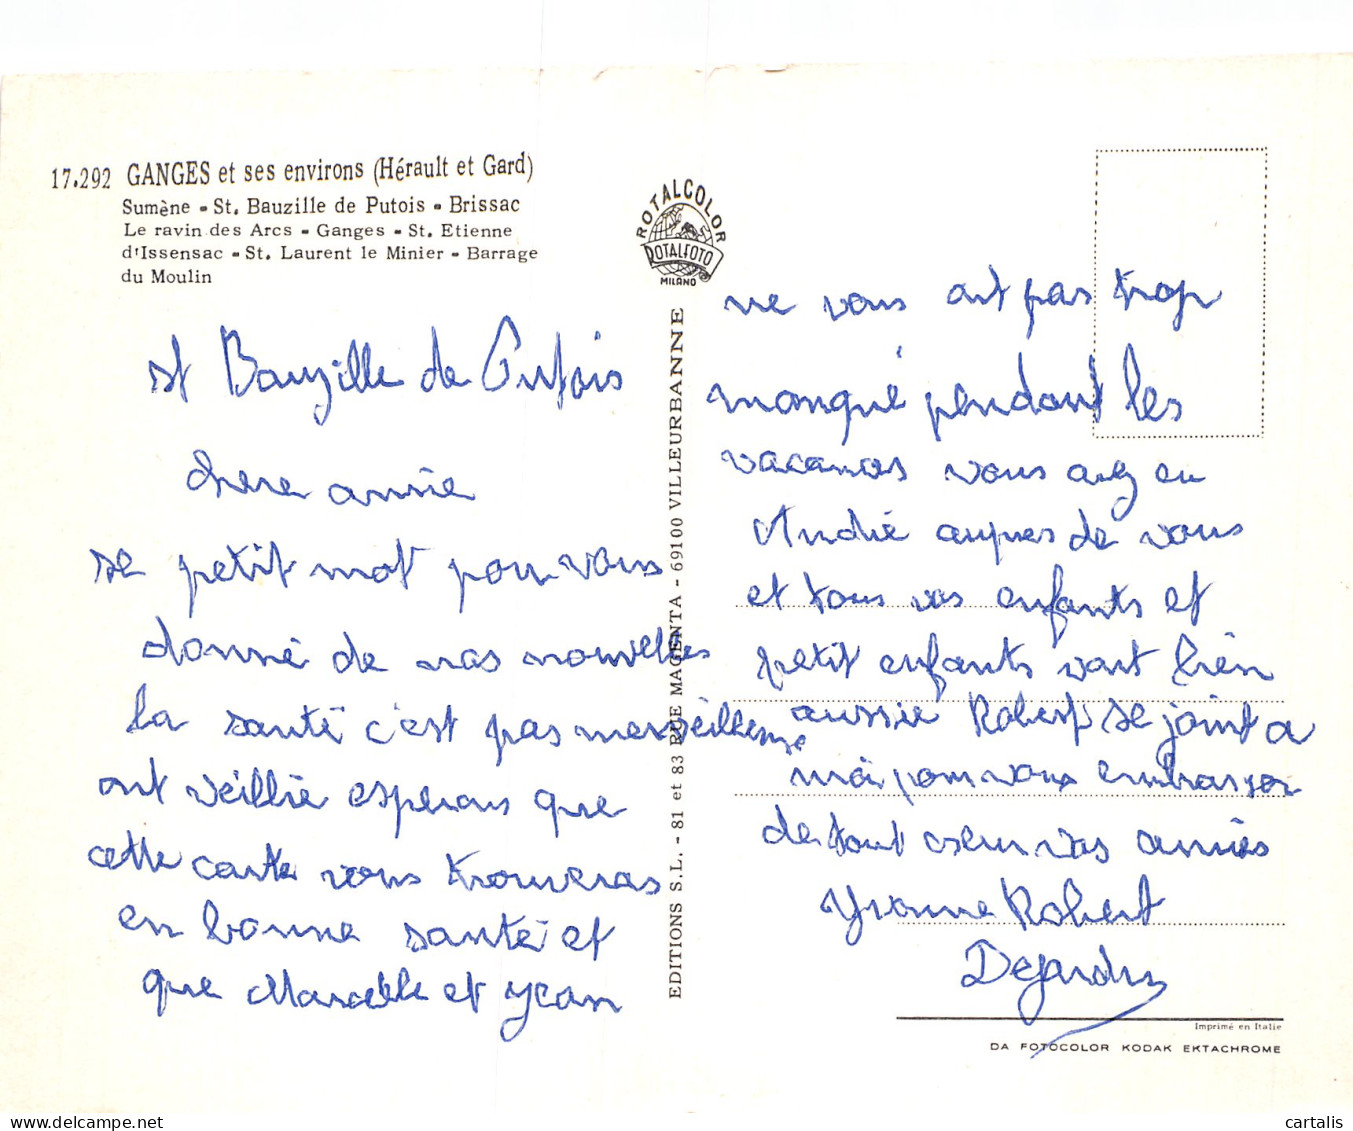 17.292 GANGES et ses environs (Hérault et Gard)
Sumène - St. Bauzille de Putois - Brissac
Le ravin des Arcs - Ganges - St. Etienne
d'Issensac - St. Laurent le Minier - Barrage
du Moulin
ROTALCOLOR
ROTALFOTO
MILANO
EDITIONS S.L. - 81 et 83 RUE MAGENTA - 69100 VILLEURBANNE
st Bauzille de Putois
chere annie
se petit mot pour vous
donné de nos nouvelles
la santé c'est pas merveilleuse
ont veillie esperons que
cette carte vous trouveras
en bonne santé et
que Marcelle et jean
ne vous ont pas trop
manqué pendant les
vacances vous avez eu
André aupres de vous
et tous vos enfants et
petit enfants vont bien
aussie Robert se joint a
moi pour vous embrasser
de tout coeur vos amies
Yvonne Robert
Dejardin
Imprimé en Italie
DA FOTOCOLOR KODAK EKTACHROME
cartalis